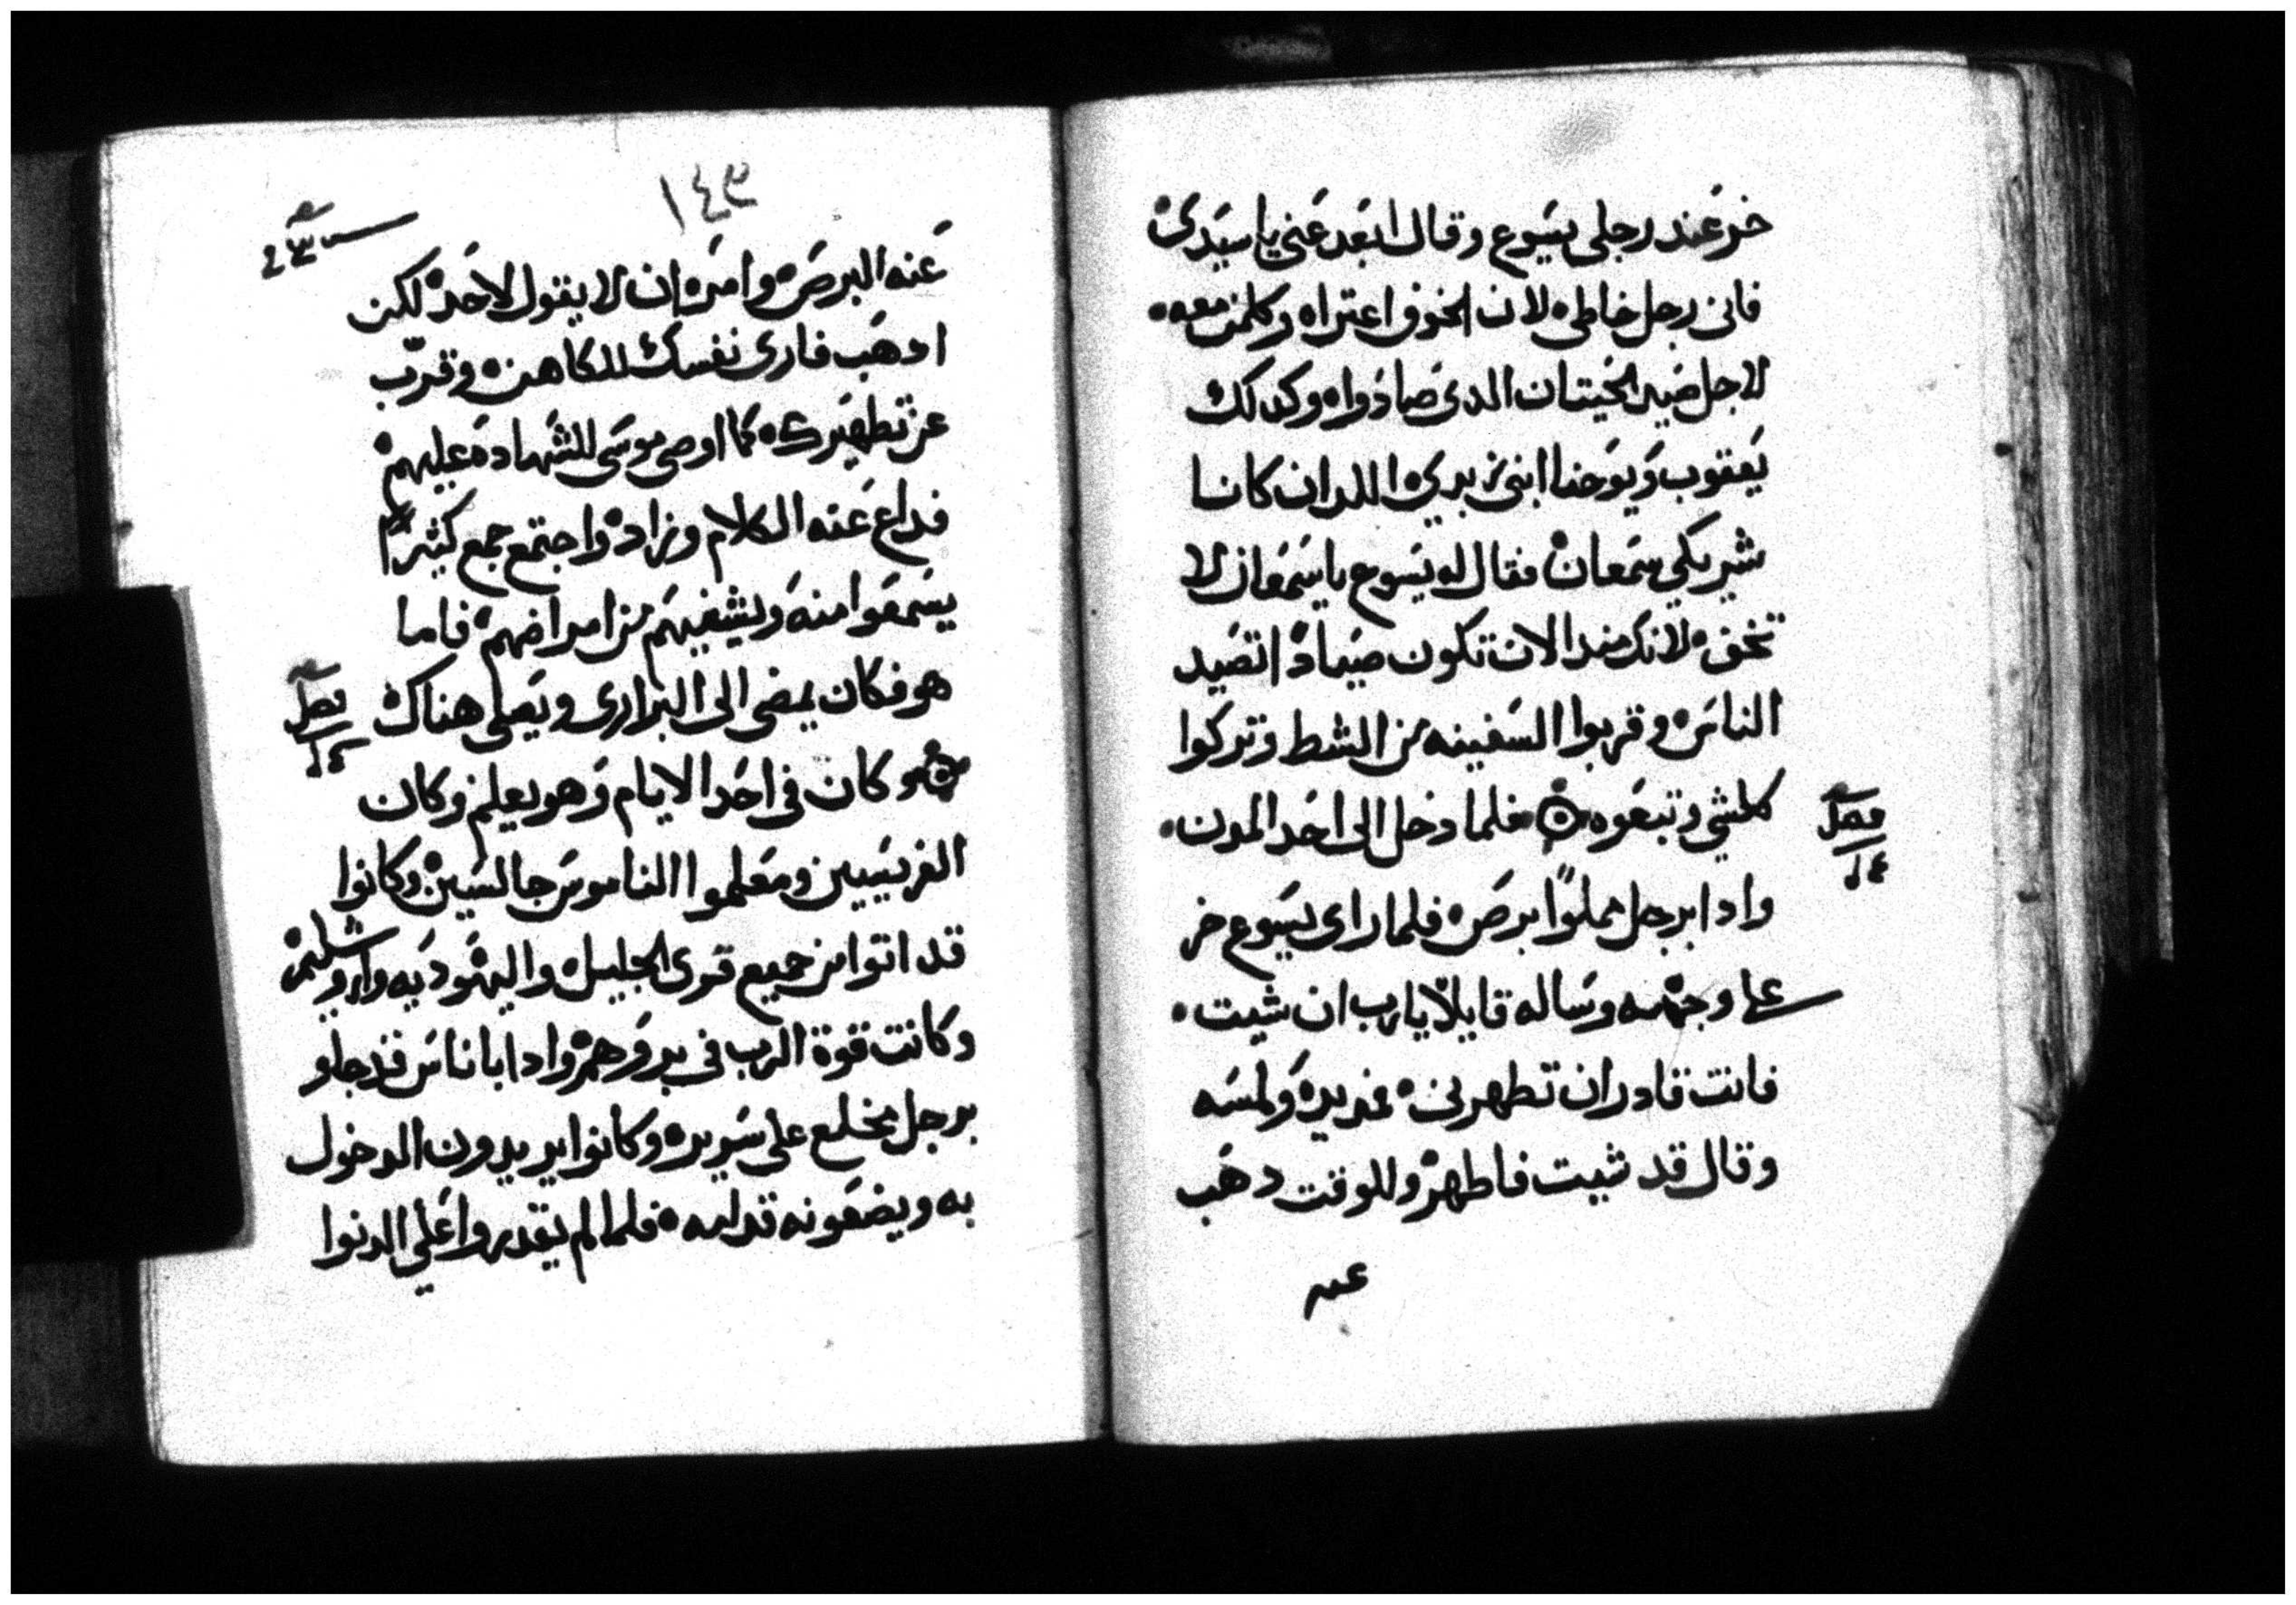 خر عند رجلى يسوع وقال ابعد عني يا سيدى
فانى رجل خاطى لان الخوف اعتراه وكلمن معه
لاجل صيد الحيتان الدى صادوا وكدلك
يعقوب ويوحنا ابنى زبدي اللدان كانا
شريكي سمعان فقال له يسوع يا سمعان لا
تخف لانك مند الان تكون صيادا تصيد
الناس وقربوا السفينه من الشط وتركوا
كلشي وتبعوه فلما دخل الى احد المدن
فصل
وادا برجل مملوا برص فلما راى يسوع خر
على وجهه وساله قايلا يا رب ان شيت
فانت قادر ان تطهرنى فمد يده ولمسه
وقال قد شيت فاطهر وللوقت دهب
عنه
١٤٩
عنه البرص وامره ان لا يقول لاحد لكن
ادهب فارى نفسك للكاهن وقرب
عن تطهيرك كما اوصى موسى للشهاده عليهم
فداع عنه الكلام وزاد واجتمع جمع كثير
يسمعوا منه ويشفيهم من امراضهم فاما
هو فكان يمضى الى البرارى ويصلى هناك
فصل
وكان فى احد الايام وهو يعلم وكان
الفريسيين ومعلموا الناموس جالسين وكانوا
قد اتوا من جميع قرى الجليل واليهوديه واروشليم
وكانت قوة الرب فى بروهم وادا باناس قد جاو
برجل مخلع على سريره وكانوا يريدون الدخول
به ويضعونه قدامه فلما لم يقدروا على الدنوا